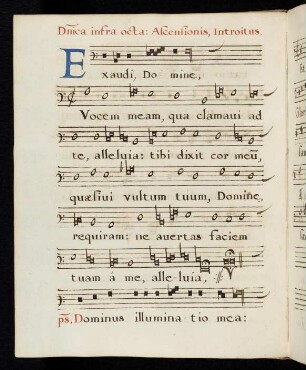 Dn̄ica infra octa: Ascensionis, Introitus.
Exaudi, Domine,
Vocem meam, qua clamaui ad
te, alleluia: tibi dixit cor meū,
quæsiui vultum tuum, Domine,
requiram: ne avertas faciem
tuam á me, alleluia,
ps, Dominus illuminatio mea: